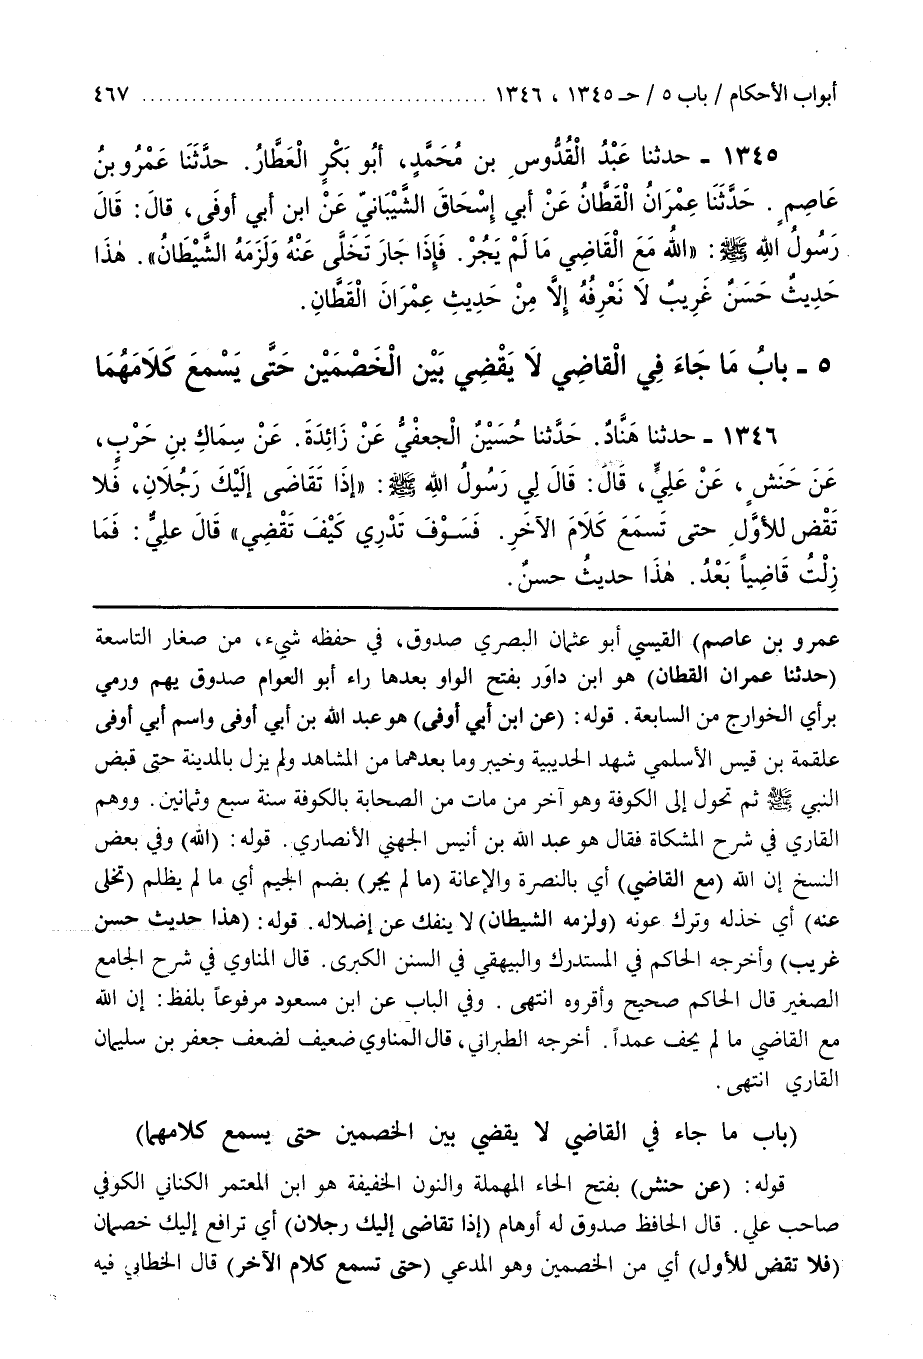 أبواب الأحكام / باب ٥ / حـ ١٣٤٥ ، ١٣٤٦ ........................................ ٤٦٧
١٣٤٥ ـ حدثنا عَبْدُ الْقُدُّوسِ بن مُحَمَّدٍ، أبُو بَكْرٍ الْعَطَّارُ. حدَّثَنَا عَمْرُو بنُ
عَاصِمٍ. حَدَّثَنَا عِمْرَانُ الْقَطَّانُ عَنْ أبي إسْحَاقَ الشَّيْبَانِيّ عَنْ ابن أبي أوفَى، قالَ: قَالَ
رَسُولُ اللهِ ﷺ: «اللهُ مَعَ الْقَاضِي مَا لَمْ يَجُرْ. فَإِذَا جَارَ تَخَلَّى عَنْهُ وَلَزِمَهُ الشَّيْطَانُ». هٰذَا
حَدِيثٌ حَسَنٌ غَرِيبٌ لَا نَعْرِفُهُ إلَّا مِنْ حَدِيثِ عِمْرَانَ الْقَطَّانِ.
٥ ـ بابُ مَا جَاءَ فِي الْقاضِي لَا يَقْضِي بَيْن الْخَصْمَيْن حَتَّى يَسْمعَ كَلَامَهُمَا
١٣٤٦ ـ حدثنا هَنَّادٌ. حَدَّثنا حُسَيْنٌ الْجعفيُّ عَنْ زَائِدَةَ. عَنْ سِمَاكِ بنِ حَرْبٍ،
عَنَ حَنَشٍ، عَنْ عَلِيٍّ، قَالَ: قَالَ لِي رَسُولُ الله ﷺ: «إذَا تَقَاضَى إلَيْكَ رَجُلَانِ، فَلَا
تَقْضِ للأوَّلِ حتى تَسمَعَ كَلَامَ الآخَرِ. فَسَوْفَ تَدْرِي كَيْفَ تَقْضِي» قَالَ عليٌّ: فَمَا
زِلْتُ قَاضِياً بَعْدُ. هٰذَا حديثُ حسنٌ.
عمرو بن عاصم) القيسي أبو عثمان البصري صدوق، في حفظه شيء، من صغار التاسعة
(حدثنا عمران القطان) هو ابن داوَر بفتح الواو بعدها راء أبو العوام صدوق يهم ورمي
برأي الخوارج من السابعة. قوله: (عن ابن أبي أوفى) هو عبد الله بن أبي أوفى واسم أبي أوفى
علقمة بن قيس الأسلمي شهد الحديبية وخيبر وما بعدهما من المشاهد ولم يزل بالمدينة حتى قبض
النبي ﷺ ثم تحول إلى الكوفة وهو آخر من مات من الصحابة بالكوفة سنة سبع وثمانين. ووهم
القاري في شرح المشكاة فقال هو عبد الله بن أنيس الجهني الأنصاري. قوله: (الله) وفي بعض
النسخ إن الله (مع القاضي) أي بالنصرة والإعانة (ما لم يجر) بضم الجيم أي ما لم يظلم (تخلى
عنه) أي خذله وترك عونه (ولزمه الشيطان) لا ينفك عن إضلاله. قوله: (هذا حديث حسن
غريب) وأخرجه الحاكم في المستدرك والبيهقي في السنن الكبرى. قال المناوي في شرح الجامع
الصغير قال الحاكم صحيح وأقروه انتهى. وفي الباب عن ابن مسعود مرفوعاً بلفظ: إن الله
مع القاضي ما لم يحف عمداً. أخرجه الطبراني، قال المناوي ضعيف لضعف جعفر بن سليمان
القاري انتهى.
(باب ما جاء في القاضي لا يقضي بين الخصمين حتى يسمع كلامهما)
قوله: (عن حنش) بفتح الحاء المهملة والنون الخفيفة هو ابن المعتمر الكناني الكوفي
صاحب علي. قال الحافظ صدوق له أوهام (إذا تقاضى إليك رجلان) أي ترافع إليك خصمان
(فلا تقض للأول) أي من الخصمين وهو المدعي (حتى تسمع كلام الآخر) قال الخطابي فيه